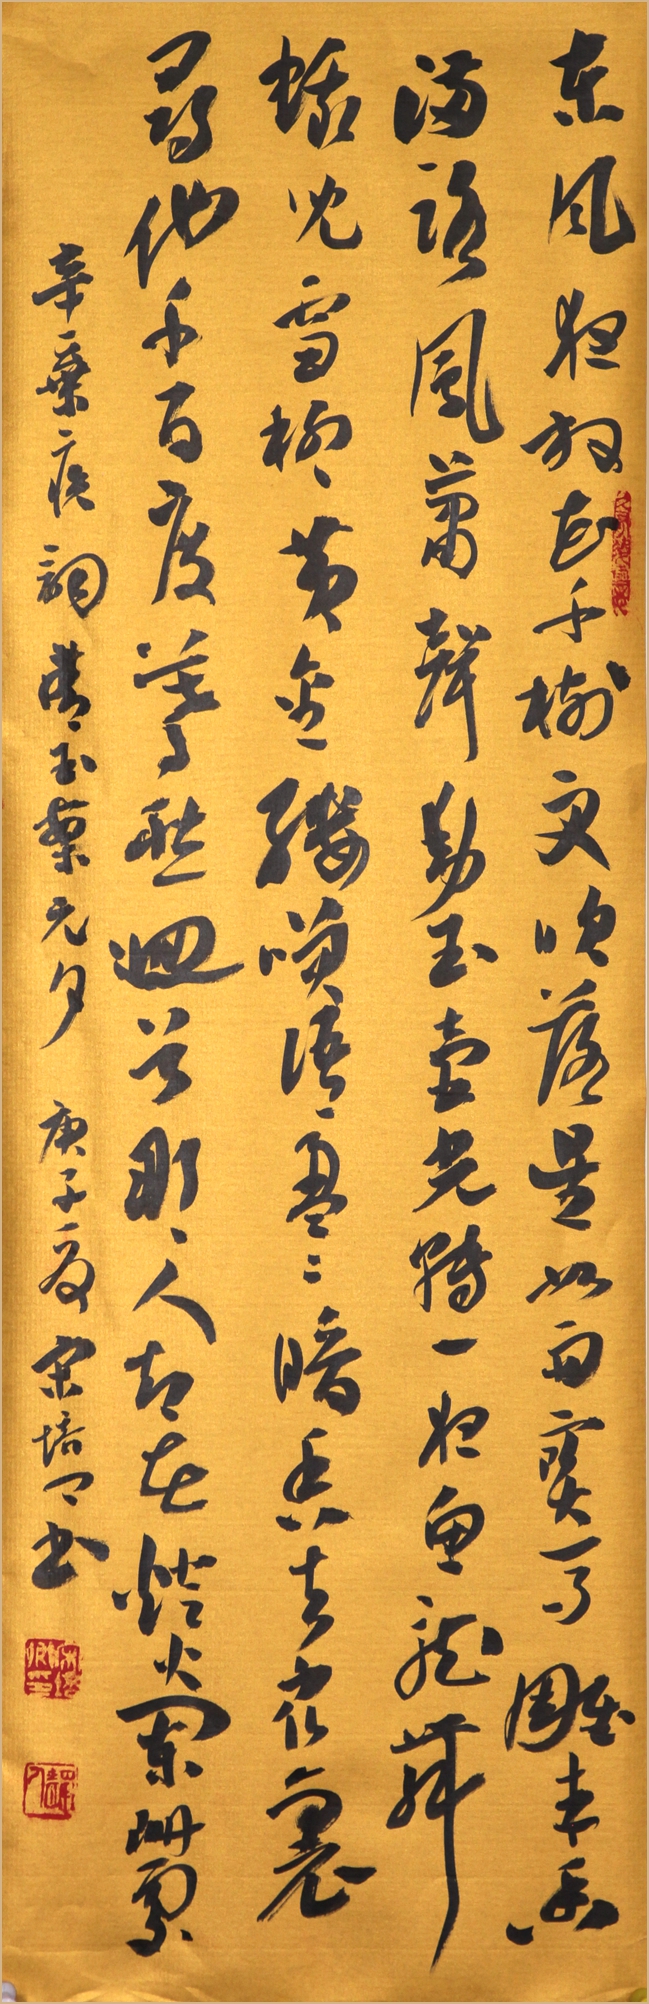 東风夜放花千樹更吹落星如雨寶馬雕車香
滿路鳳簫聲動玉壺光轉一夜魚龍舞
蛾兒雪柳黃金縷笑語盈〻暗香去衆裏
尋他千百度驀然迴首那人却在燈火闌珊處
辛棄疾詞青玉案元夕 庚子夏宋培卿書